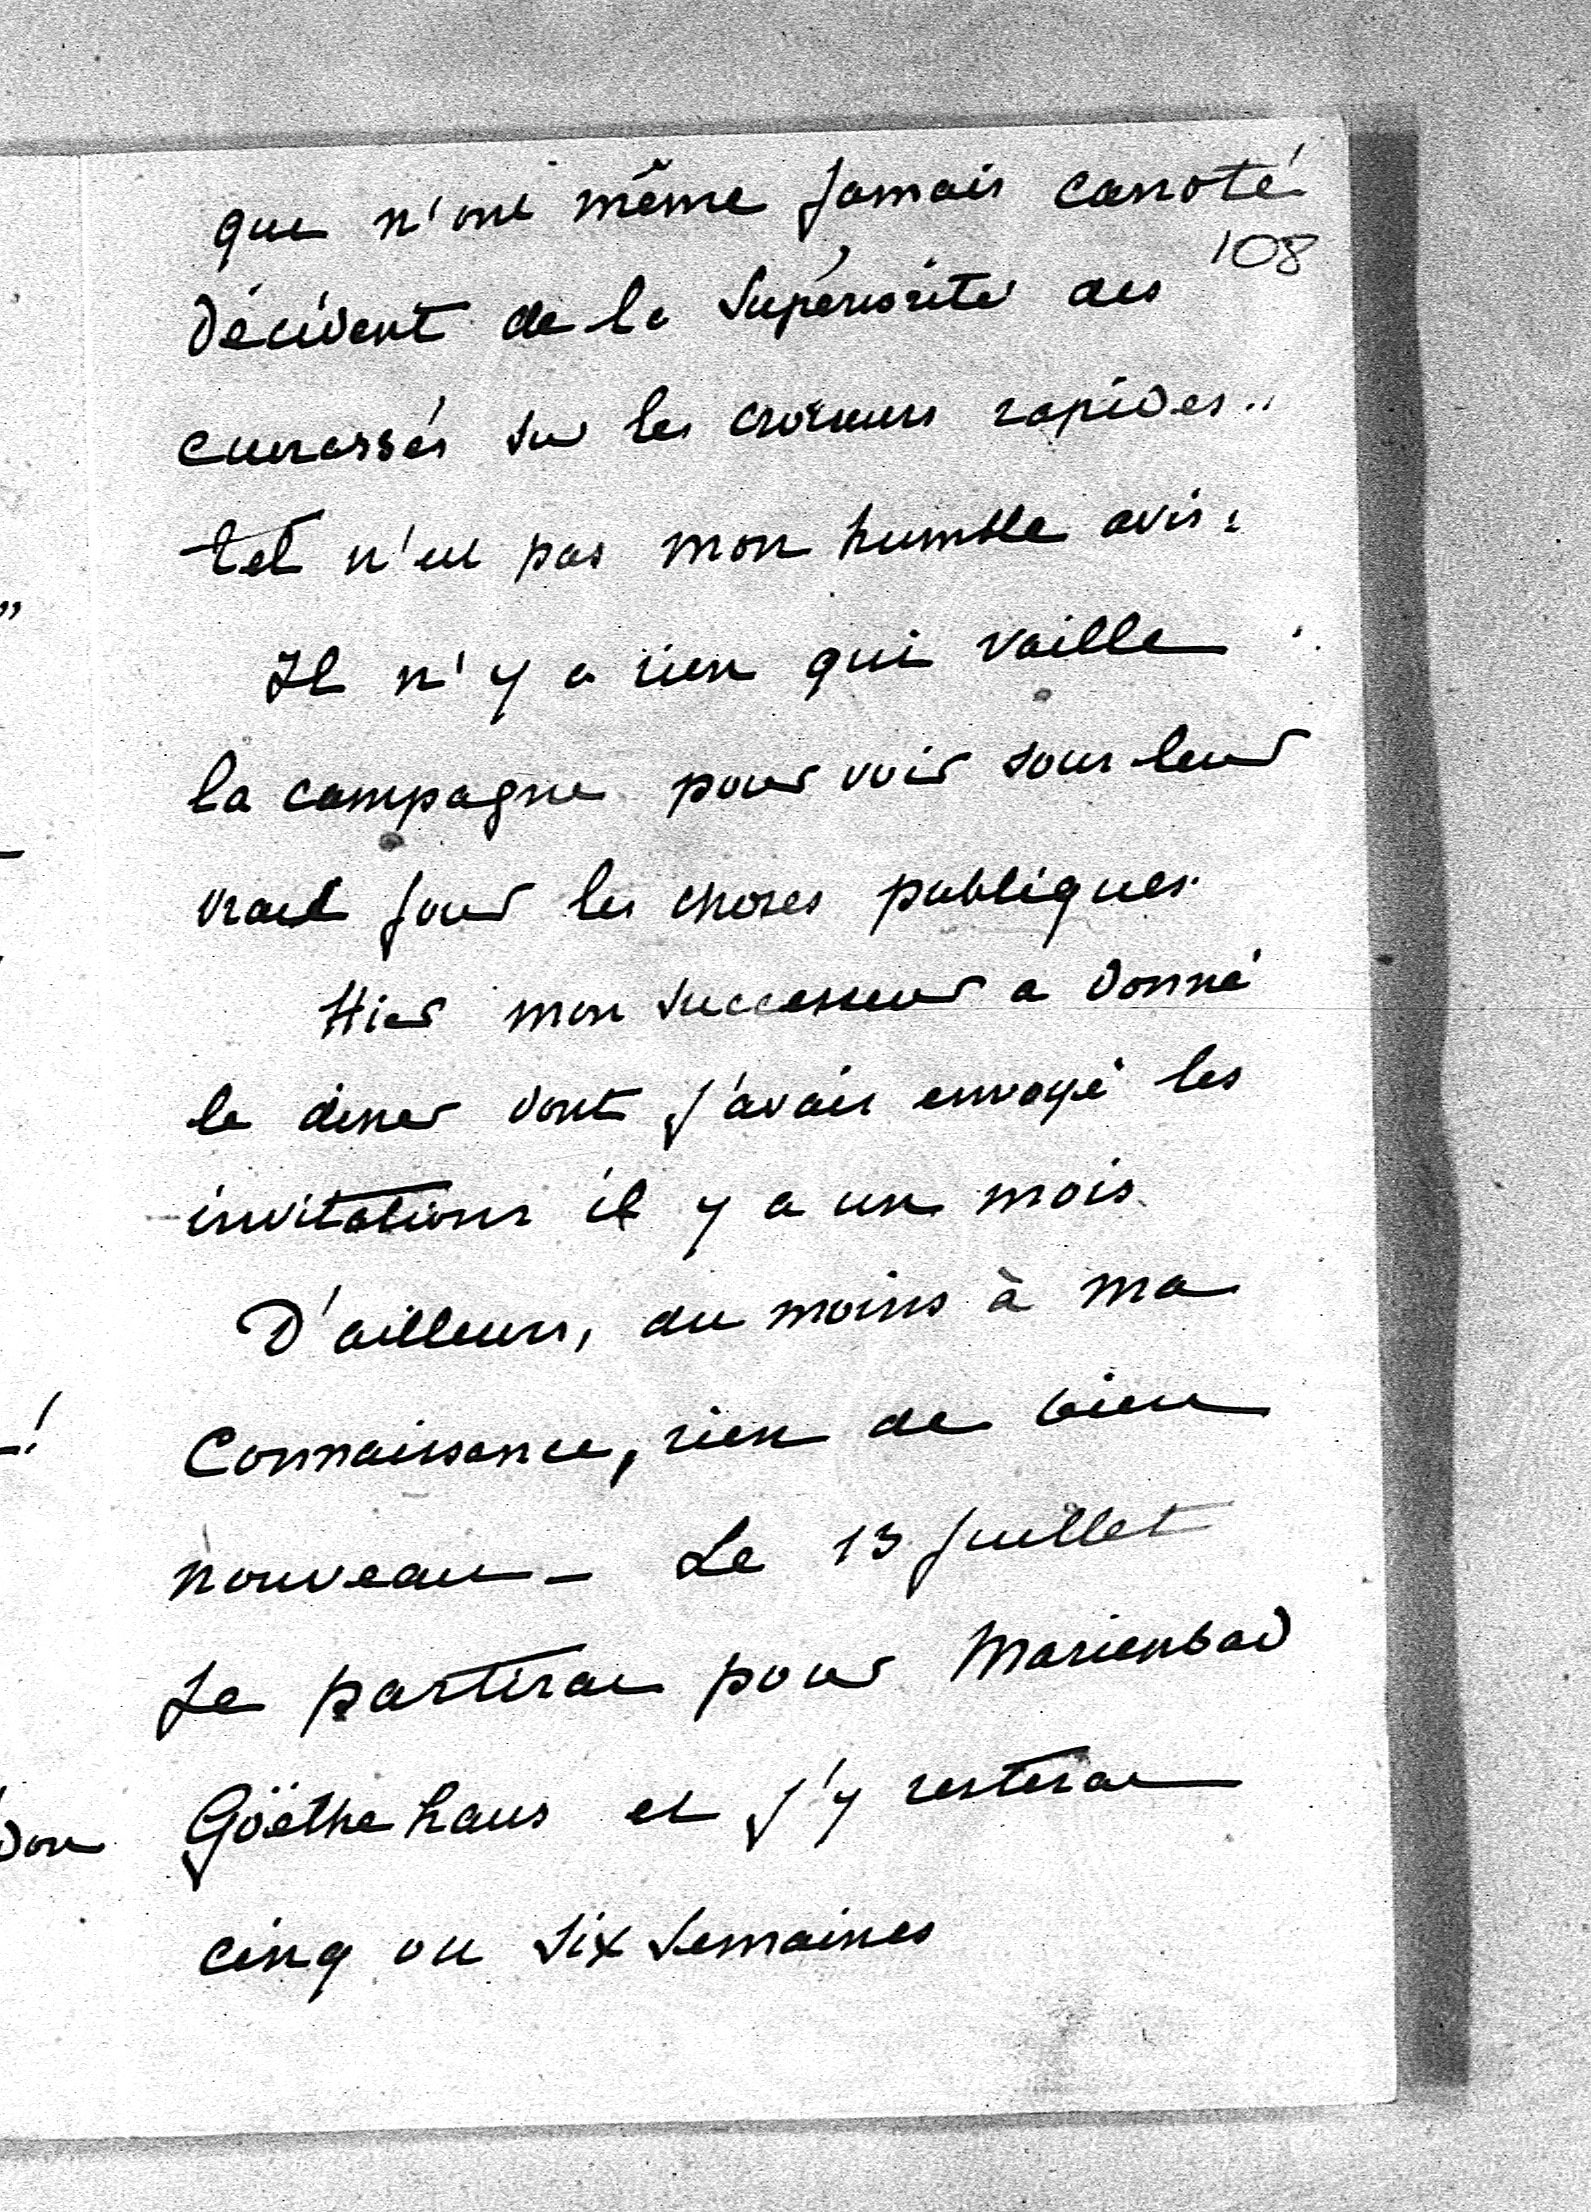 que n'ont même jamais canoté
108
décident de la supériorité des
cuirassés sur les croiseurs rapides..
tel n'est pas mon humble avis.
Il n'y a rien qui vaille
la campagne pour voir sous leur
vrai jour les choses publiques.
Hier mon successeur a donné
le diner dont j'avais envoyé les
invitations il y a un mois.
D'ailleurs, du moins à ma
Connaissance, rien de bien
nouveau - Le 13 juillet
je partirai pour Marienbad
Göethe haus et j'y resterai
cinq ou six semaines